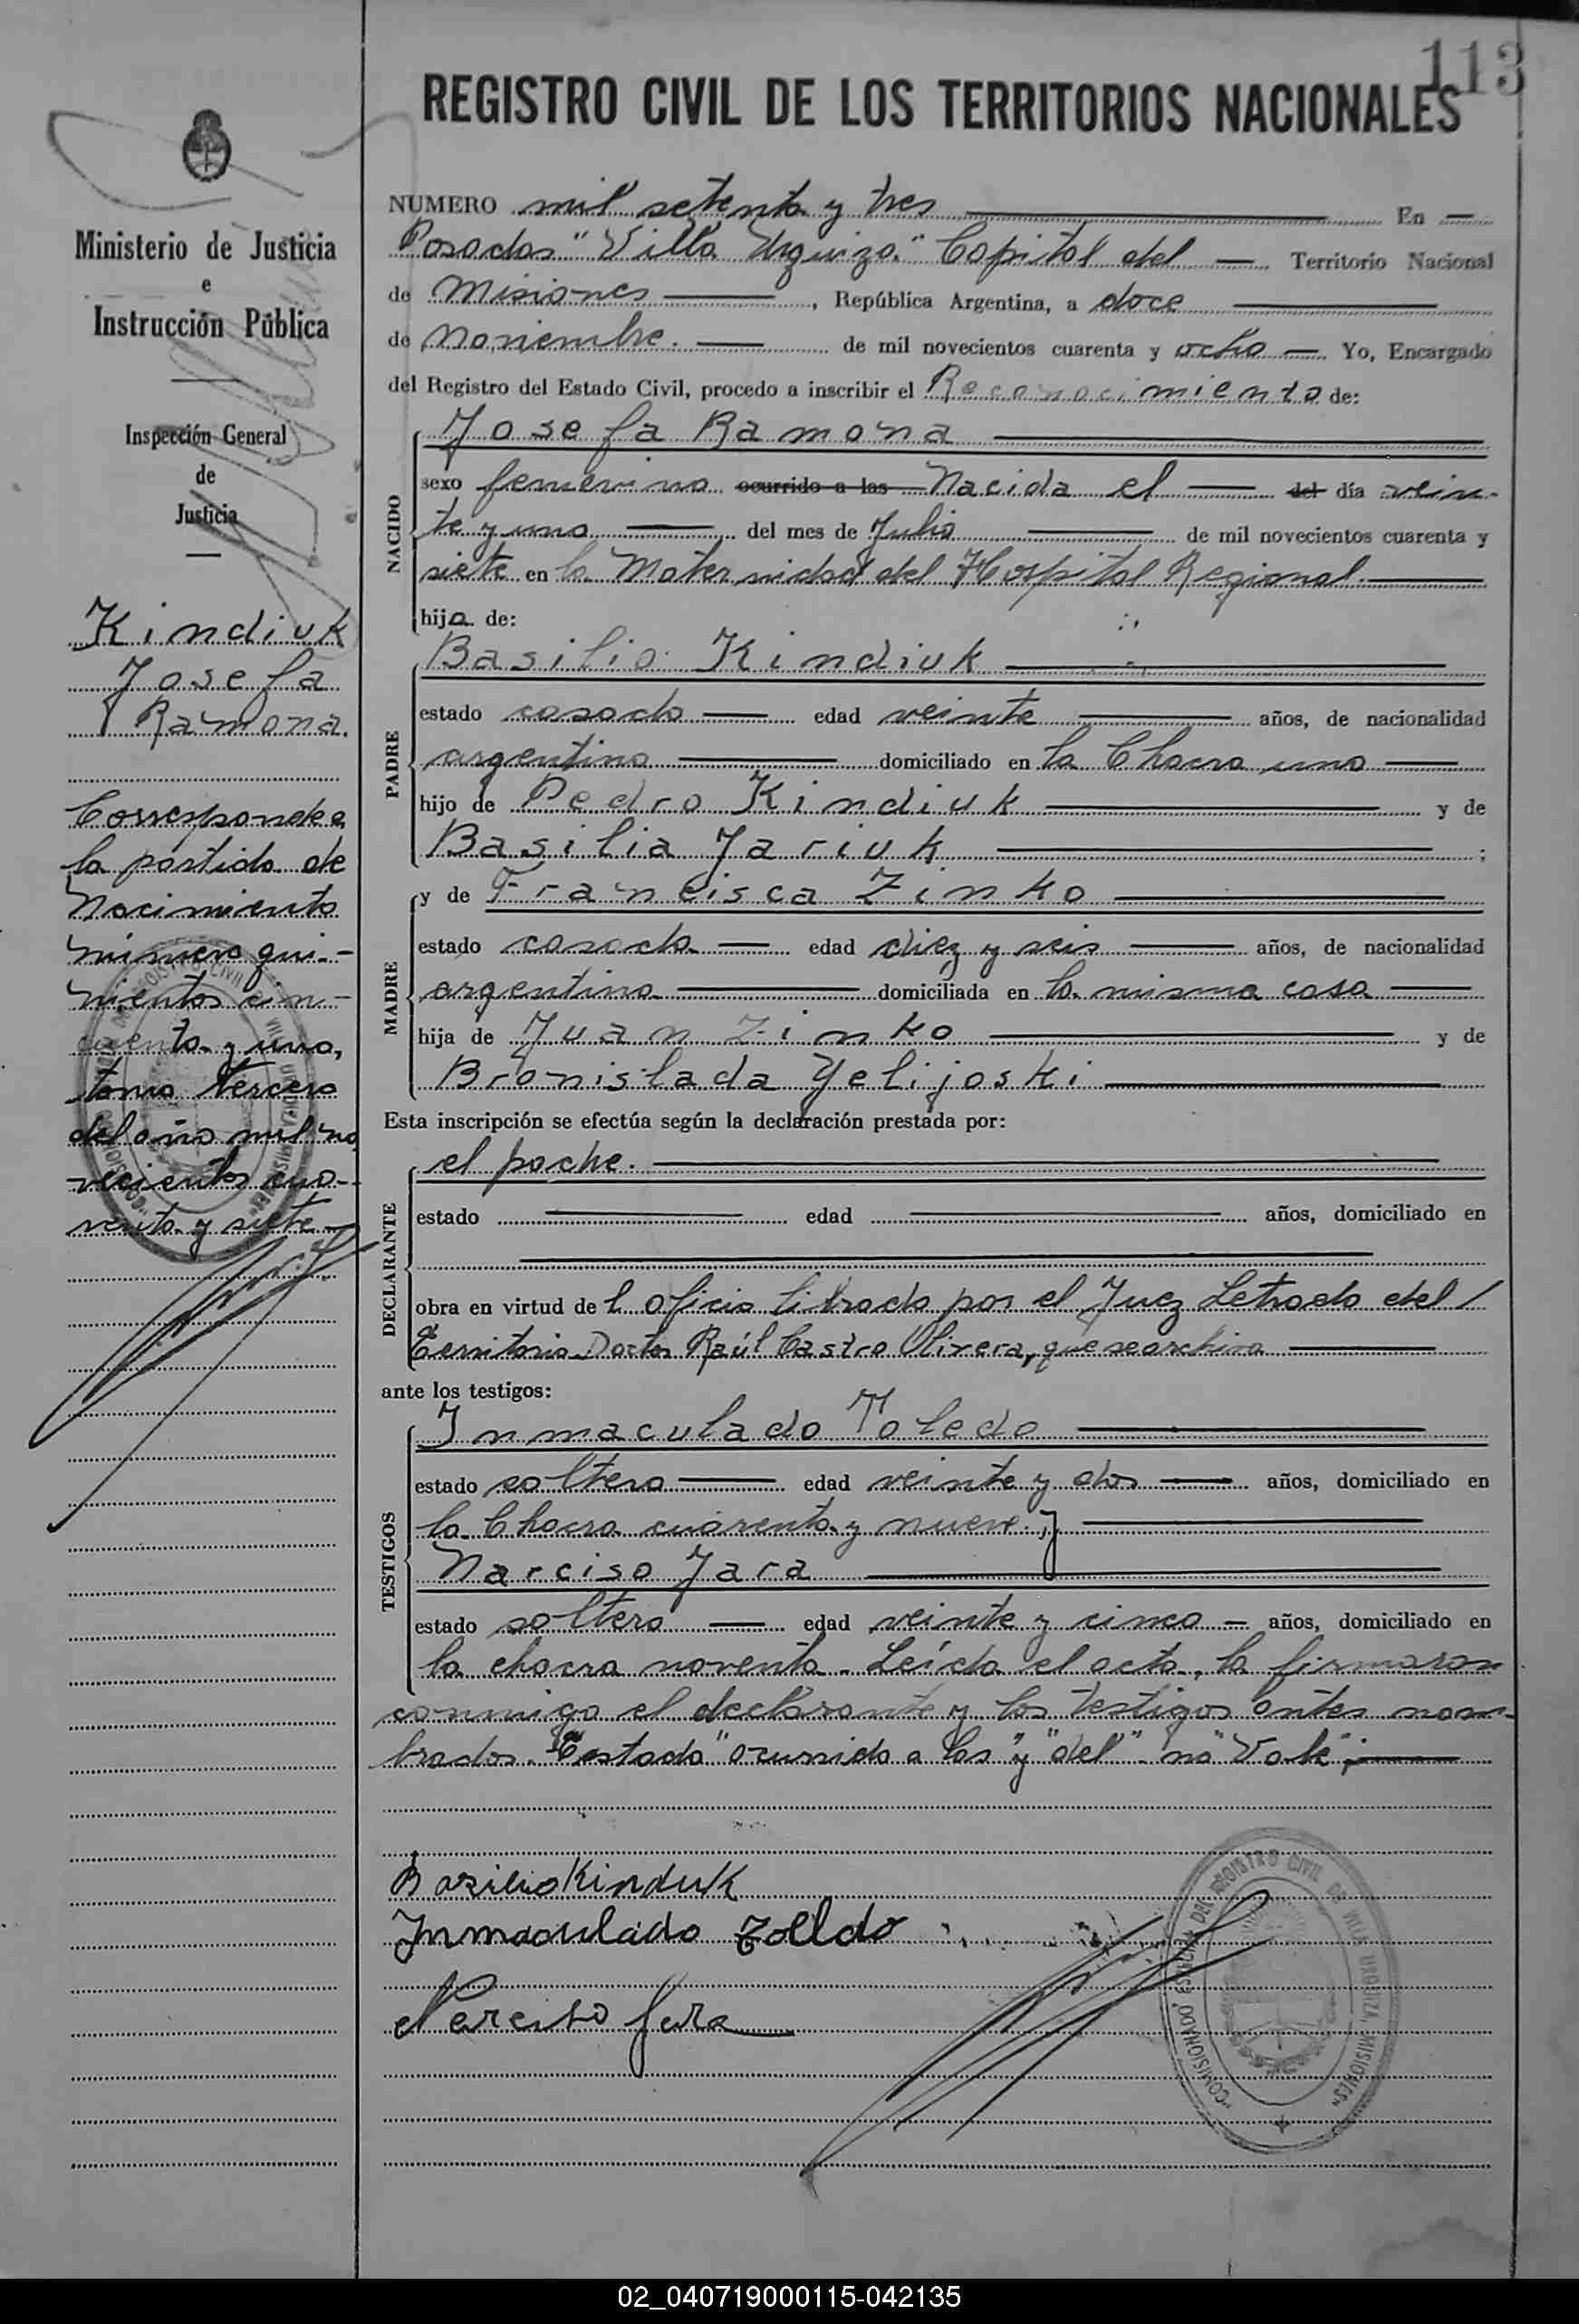 113
REGISTRO CIVIL DE LOS TERRITORIOS NACIONALES
Ministerio de Justicia
e
Instrucción Pública
Inspección General
de
Justicia
Kindiuk
Josefa
Ramona.
Corresponde a
la partida de
Nacimiento
número qui-
nientos cin-
cuenta y uno,
tomo tercero
del año mil no
vecientos cua-
renta y siete
NUMERO mil setenta y tres En
Posadas "Villa Urquiza" Capital del Territorio Nacional
de Misiones, República Argentina, a doce
de Noviembre. de mil novecientos cuarenta y ocho Yo, Encargado
del Registro del Estado Civil, procedo a inscribir el Reconocimiento de:
NACIDO
Josefa Ramona
sexo femenino ocurrido a las Nacida el del día vein-
te y uno del mes de Julio de mil novecientos cuarenta y
siete en la Maternidad del Hospital Regional.
hija de:
PADRE
Basilio Kindiuk
estado casado edad veinte años, de nacionalidad
argentina domiciliado en la Chacra uno
hijo de Pedro Kindiuk y de
Basilia Jariuk ;
MADRE
y de Francisca Zinko
estado casada edad diez y seis años, de nacionalidad
argentina domiciliada en la misma casa
hija de Juan Zinko y de
Bronislada Yelijoski
Esta inscripción se efectúa según la declaración prestada por:
DECLARANTE
el padre.
estado edad años, domiciliado en
obra en virtud del oficio librado por el Juez Letrado del /
Territorio Doctor Raúl Castro Olivera, que se archiva
ante los testigos:
TESTIGOS
Inmaculado Toledo
estado soltero edad veinte y dos años, domiciliado en
la Chacra cuarenta y nueve. y
Narciso Jara
estado soltero edad veinte y cinco años, domiciliado en
la chacra noventa. Leída el acta, la firmaron
conmigo el declarante y los testigos antes nom-
brados. Testado "ocurrido a las" y "del" no "Vale";
Basilio Kinduk
Inmaculado Tolldo
Narciso Jara
"COMISIONADO ESCOLAR DEL REGISTRO CIVIL DE VILLA URQUIZA, MISIONES"
02_040719000115-042135